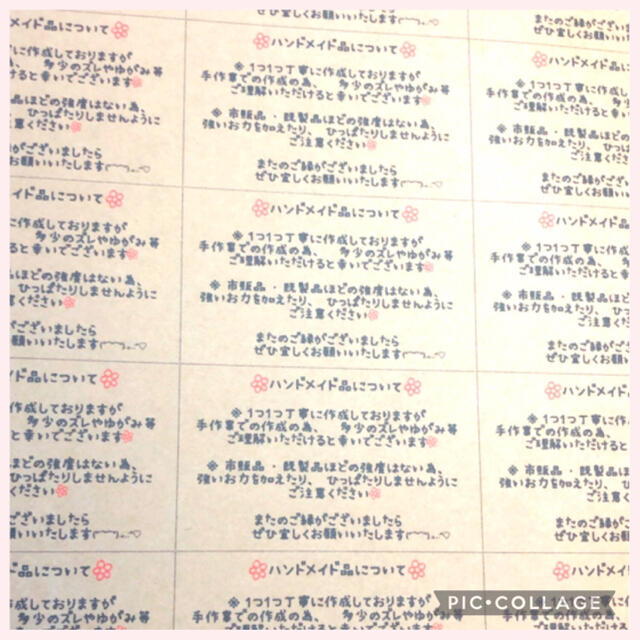 ぜひ宜しくお願いいたします
またのご縁がございま
ぜひ宜しくお願いい
メイド品について
に作成しておりますが
多少のズレやゆがみ等
ると幸いでございます
品ほどの強度はない為、
ひっぱたりしませんように
注意ください
がございましたら
お願いいたします
ハンドメイド品について
※ 1つ1つ丁寧に作成しておりますが
手作業での作成の為、 多少のズレやゆがみ等
ご理解いただけると幸いでございます
※ 市販品・既製品ほどの強度はない為、
強いお力を加えたり、 ひっぱたりしませんように
ご注意ください
またのご縁がございましたら
ぜひ宜しくお願いいたします
ハンドメイド品
※ 1つ1つ丁寧に作成し
手作業での作成の為、 多
ご理解いただけると
※ 市販品・既製品ほど
強いお力を加えたり、 ひ
ご注意くだ
またのご縁がござ
ぜひ宜しくお願い
イド品について
に作成しておりますが
多少のズレやゆがみ等
ると幸いでございます
ほどの強度はない為、
ひっぱたりしませんように
ください
がございましたら
願いいたします
ハンドメイド品について
※ 1つ1つ丁寧に作成しておりますが
手作業での作成の為、 多少のズレやゆがみ等
ご理解いただけると幸いでございます
※ 市販品・既製品ほどの強度はない為、
強いお力を加えたり、 ひっぱたりしませんように
ご注意ください
またのご縁がございましたら
ぜひ宜しくお願いいたします
ハンドメイド品
※ 1つ1つ丁寧に作成
手作業での作成の為、 多
ご理解いただけると
※ 市販品・既製品ほ
強いお力を加えたり、 ひ
ご注意くだ
またのご縁がご
ぜひ宜しくお
イド品について
作成しておりますが
多少のズレやゆがみ等
と幸いでございます
ほどの強度はない為、
ひっぱたりしませんように
ください
ございましたら
願いいたします
ハンドメイド品について
※ 1つ1つ丁寧に作成しておりますが
手作業での作成の為、 多少のズレやゆがみ等
ご理解いただけると幸いでございます
※ 市販品・既製品ほどの強度はない為、
強いお力を加えたり、 ひっぱたりしませんように
ご注意ください
またのご縁がございましたら
ぜひ宜しくお願いいたします
ハンドメイド
※ 1つ1つ丁寧に作
手作業での作成の為、
ご理解いただける
※ 市販品・既製品ほ
強いお力を加えたり、
ご注意く
またのご縁が
ぜひ宜しくお
ド品について
成しておりますが
少のズレやゆがみ等
ハンドメイド品について
※ 1つ1つ丁寧に作成しておりますが
手作業での作成の為、 多少のズレやゆがみ等
ハンドメイ
PIC•COLLAGE